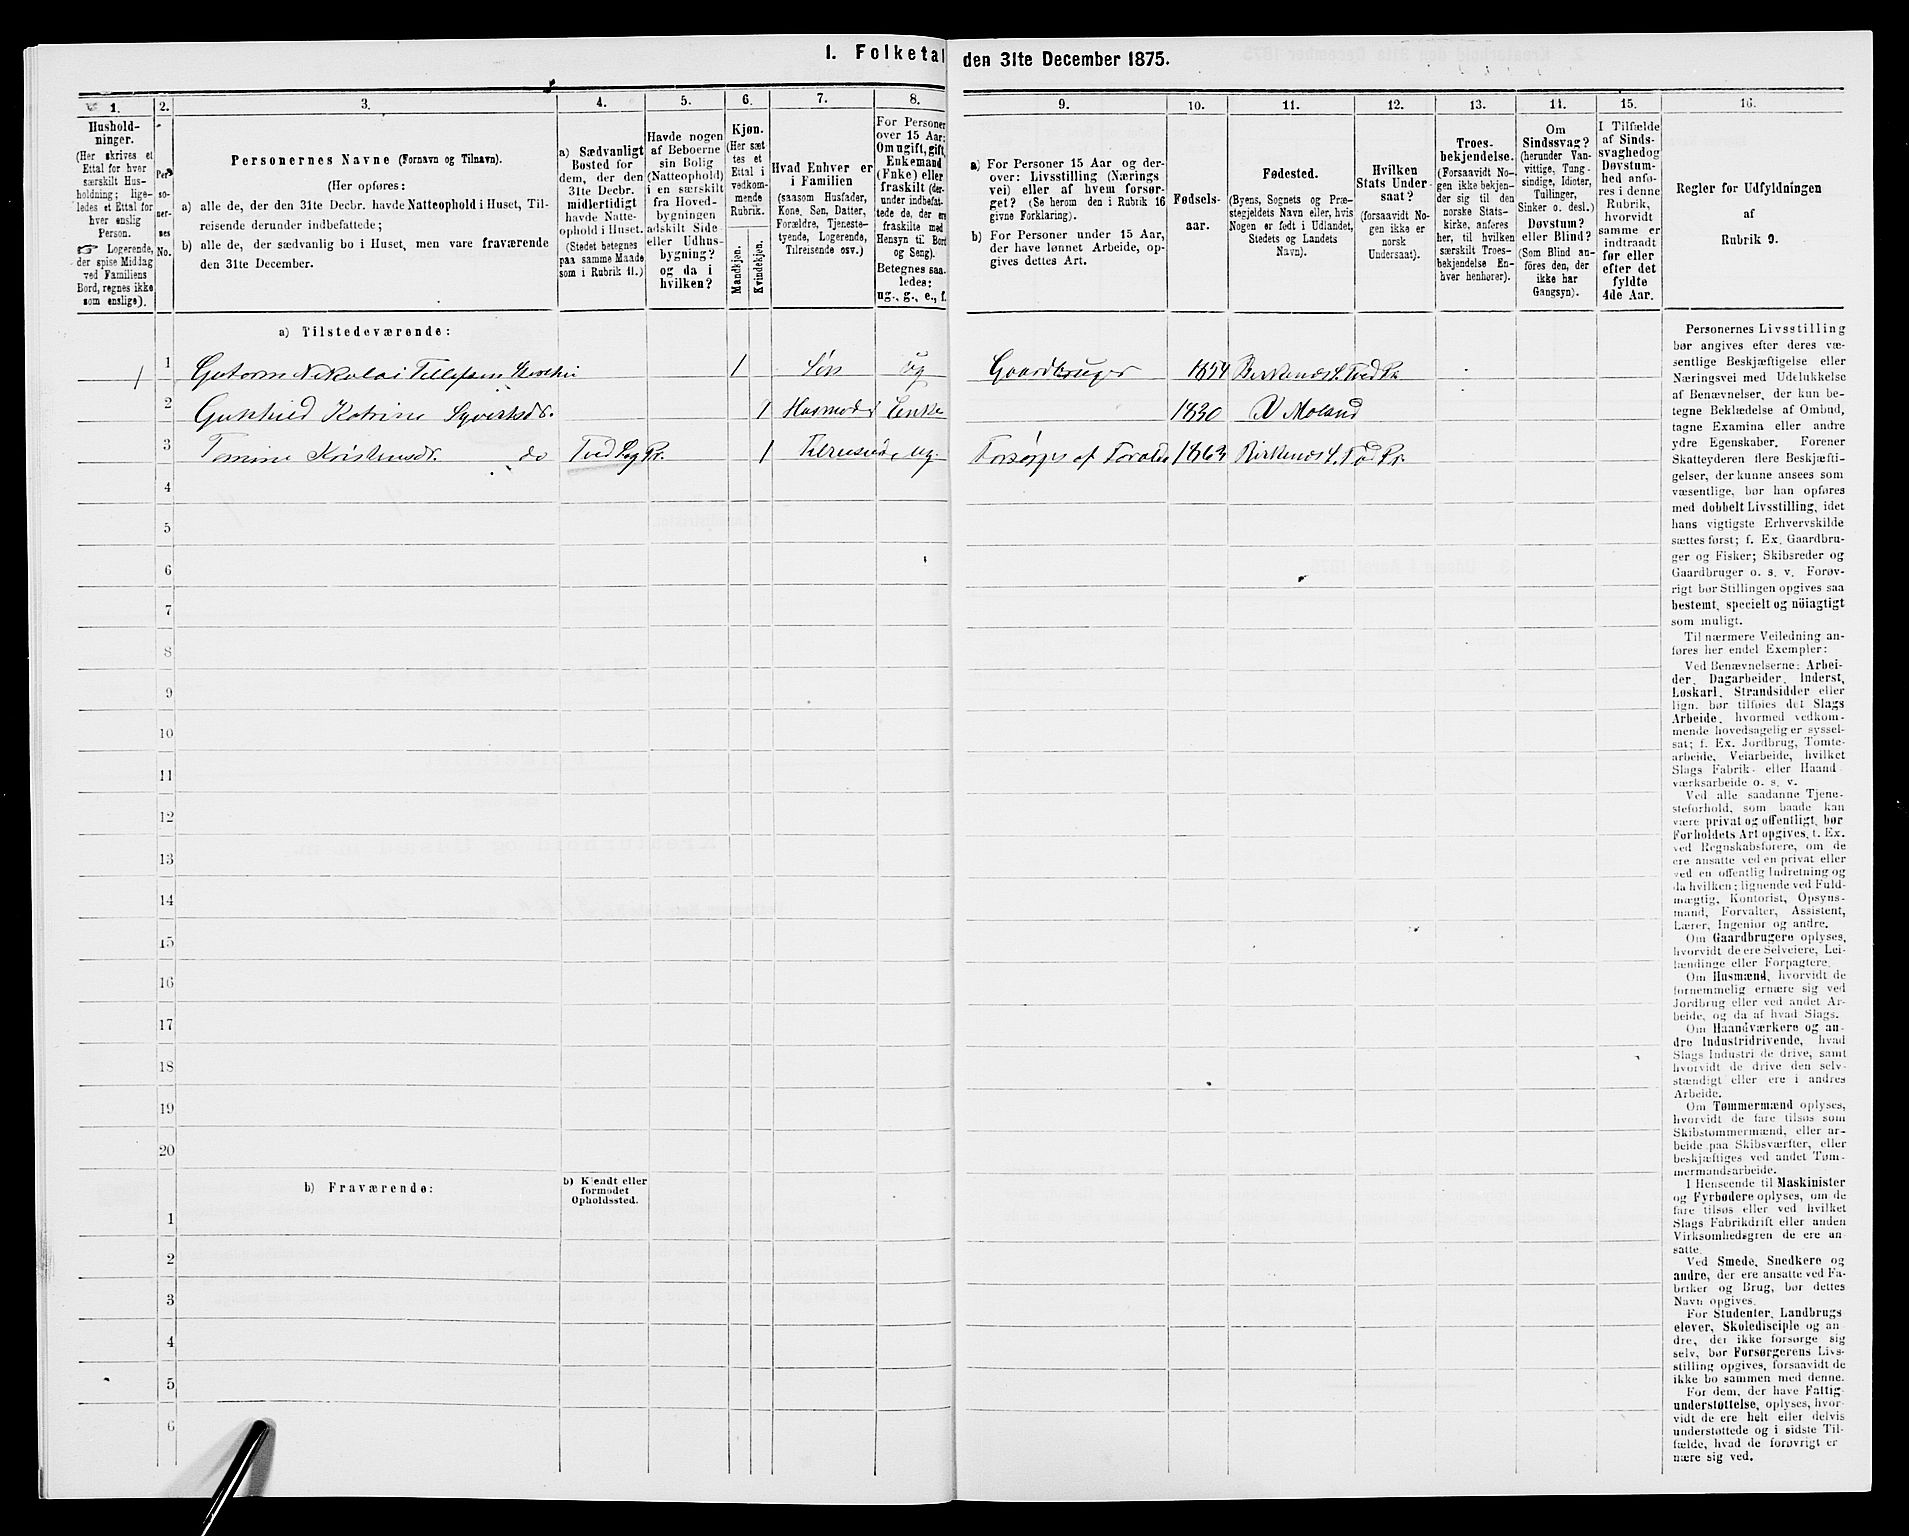 1. Folketal den 31te December 1875.
1. 2. 3. 4. 5. 6. 7. 8. 9. 10. 11. 12. 13. 14. 15. 16.
Hushold-
ninger.
(Her skrives et
Ettal for hver
særskilt Hus-
holdning; lige-
ledes et Ettal for
hver enslig
Person.
☞ Logerende,
der spise Middag
ved Familiens
Bord, regnes ikke
som enslige).
Per-
so-
ner-
nes
No.
Personernes Navne (Fornavn og Tilnavn).
(Her opføres:
a) alle de, der den 31te Decbr. havde Natteophold i Huset, Til-
reisende derunder indbefattede;
b) alle de, der sædvanlig bo i Huset, men vare fraværende
den 31te December.
a) Sædvanligt
Bosted for
dem, der den
31te Decbr.
midlertidigt
havde Natte-
ophold i Huset.
(Stedet betegnes
paa samme Maade
som i Rubrik 11.)
Havde nogen
af Beboerne
sin Bolig
(Natteophold)
i en særskilt
fra Hoved-
bygningen
adskilt Side
eller Udhus-
bygning?
og da i
hvilken?
Kjøn.
(Her sæt
tes et
Ettal i
vedkom-
mende
Rubrik.
Mandkjøn.
Kvindekjøn.
Hvad Enhver er
i Familien
(saasom Husfader,
Kone, Søn, Datter,
Forældre, Tjeneste-
tyende, Logerende,
Tilreisende osv.)
For Personer
over 15 Aar:
Om ugift, gift,
Enkemand
(Enke) eller
fraskilt (der-
under indbefat-
tede de, der ere
fraskilte med
Hensyn til Bord
og Seng).
Betegnes saa-
ledes:
ug., g., e., f.
a) For Personer 15 Aar og der-
over: Livsstilling (Nærings
vei) eller af hvem forsør-
get? (Se herom den i Rubrik 16
givne Forklaring).
b) For Personer under 15 Aar,
der have lønnet Arbeide, op-
gives dettes Art.
Fødsels-
aar.
Fødested.
(Byens, Sognets og Præ-
stegjeldets Navn eller, hvis
Nogen er født i Udlandet,
Stedets og Landets
Navn).
Hvilken
Stats Under-
saat?
(forsaavidt No-
gen ikke er
norsk
Undersaat).
Troes-
bekjendelse.
(Forsaavidt No-
gen ikke bekjen-
der sig til den
norske Stats-
kirke, anføres
her, til hvilken
særskilt Troes-
bekjendelse En-
hver henhører).
Om
Sindssvag?
(herunder Van-
vittige, Tung-
sindige, Idioter,
Tullinger,
Sinker o. desl.)
Døvstum?
eller Blind?
(Som Blind an-
føres den, der
ikke har
Gangsyn).
I Tilfælde
af Sinds-
svaghed og
Døvstum-
hed anfø-
res i denne
Rubrik,
hvorvidt
samme er
indtraadt
før eller
efter det
fyldte
4de Aar.
Regler for Udfyldningen
af
Rubrik 9.
a) Tilstedeværende:
1 1 Gutorm Nikolai Tellefsen 1 Søn ug Gaardbruger 1854 Birkenæs S. Tved Pr.
2 Gunhild Katrine Syvertsdr. 1 Husmoder Enke 1830 V Moland
3 Tomine Kristensdr. do Tved Sg Pr. 1 Tilreisende ug. Forsørges af Foræld 1863 Birkenæs S. Tved Pr.
4
5
6
7
8
9
10
11
12
13
14
15
16
17
18
19
20
b) Fraværende:
b) Kjendt eller
formodet
Opholdssted.
1
2
3
4
5
6
Personernes Livsstilling
bør angives efter deres væ-
sentlige Beskjæftigelse eller
Næringsvei med Udelukkelse
af Benævnelser, der kun be-
tegne Beklædelse af Ombud,
tagne Examina eller andre
ydre Egenskaber. Forener
Skatteyderen flere Beskjæfti-
gelser, der kunne ansees som
væsentlige, bør han opføres
med dobbelt Livsstilling, idet
hans vigtigste Erhvervskilde
sættes først; f. Ex. Gaardbru-
ger og Fisker; Skibsreder og
Gaardbruger o. s. v. Forøv-
rigt bør Stillingen opgives saa
bestemt, specielt og nöiagtigt
som muligt.
Til nærmere Veiledning an-
føres her endel Exempler:
Ved Benævnelserne: Arbei-
der, Dagarbeider, Inderst,
Løskarl, Strandsidder eller
lign. bør tilføies det Slags
Arbeide, hvormed vedkom-
mende hovedsagelig er syssel-
sat; f. Ex. Jordbrug, Tomte-
arbeide, Veiarbeide, hvilket
Slags Fabrik- eller Haand-
værksarbeide o. s. v.
Ved alle saadanne Tjene-
steforhold, som baade kan
være privat og offentligt, bør
Forholdets Art opgives, t. Ex.
ved Regnskabsførere, om de
ere ansatte ved en privat eller
ved en offentlig Indretning og
da hvilken; lignende ved Fuld-
mægtig, Kontorist, Opsyns-
mand, Forvalter, Assistent,
Lærer, Ingeniør og andre.
Om Gaardbrugere oplyses,
hvorvidt de ere Selveiere, Lei-
lændinge eller Forpagtere.
Om Husmænd, hvorvidt de
fornemmelig ernære sig ved
Jordbrug eller ved andet Ar-
beide, og da af hvad Slags.
Om Haandværkere og an-
dre Industridrivende, hvad
Slags Industri de drive, samt
hvorvidt de drive den selv-
stændigt eller ere i andres
Arbeide.
Om Tømmermænd oplyses,
hvorvidt de fare tilsøs som
Skibstømmermænd, eller ar-
beide paa Skibsværfter, eller
beskjæftiges ved andet Tøm-
mermandsarbeide.
I Henseende til Maskinister
og Fyrbødere oplyses, om de
fare tilsøs eller ved hvilket
Slags Fabrikdrift eller anden
Virksomhedsgren de ere an-
satte.
Ved Smede, Snedkere og
andre, der ere ansatte ved Fa-
briker og Brug, bør dettes
Navn opgives.
For Studenter, Landbrugs-
elever, Skoledisciple og an-
dre, der ikke forsørge sig
selv, bør Forsørgerens Livs-
stilling opgives, forsaavidt de
ikke bo sammen med denne.
For dem, der have Fattig-
understøttelse, oplyses, hvor-
vidt de ere helt eller delvis
understøttede og i sidste Til-
fælde, hvad de forøvrigt er-
nære sig ved.